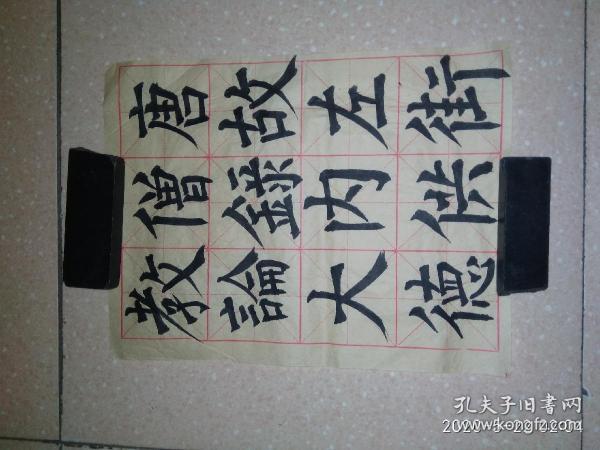 唐故左街
僧錄內供
教論大德
孔夫子旧书网
www.kongfz.com